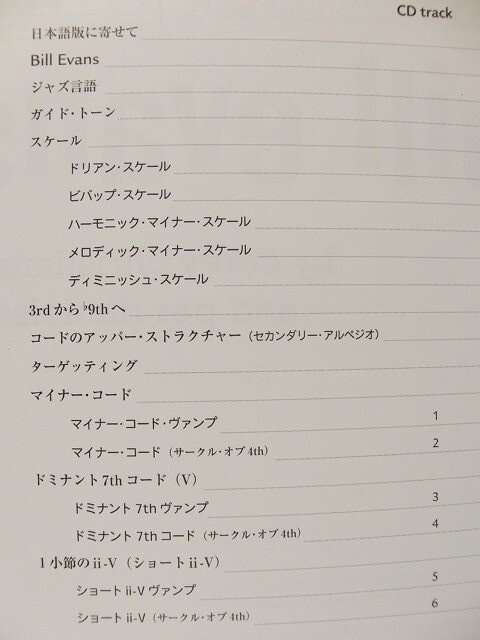 CD track
日本語版に寄せて
Bill Evans
ジャズ言語
ガイド・トーン
スケール
ドリアン・スケール
ビバップ・スケール
ハーモニック・マイナー・スケール
メロディック・マイナー・スケール
ディミニッシュ・スケール
3rdから♭9thへ
コードのアッパー・ストラクチャー（セカンダリー・アルペジオ）
ターゲッティング
マイナー・コード
マイナー・コード・ヴァンプ 1
マイナー・コード（サークル・オブ4th） 2
ドミナント7thコード（V）
ドミナント 7thヴァンプ 3
ドミナント 7thコード（サークル・オブ4th） 4
1小節のii-V（ショートii-V）
ショートii-Vヴァンプ 5
ショートii-V（サークル・オブ4th） 6